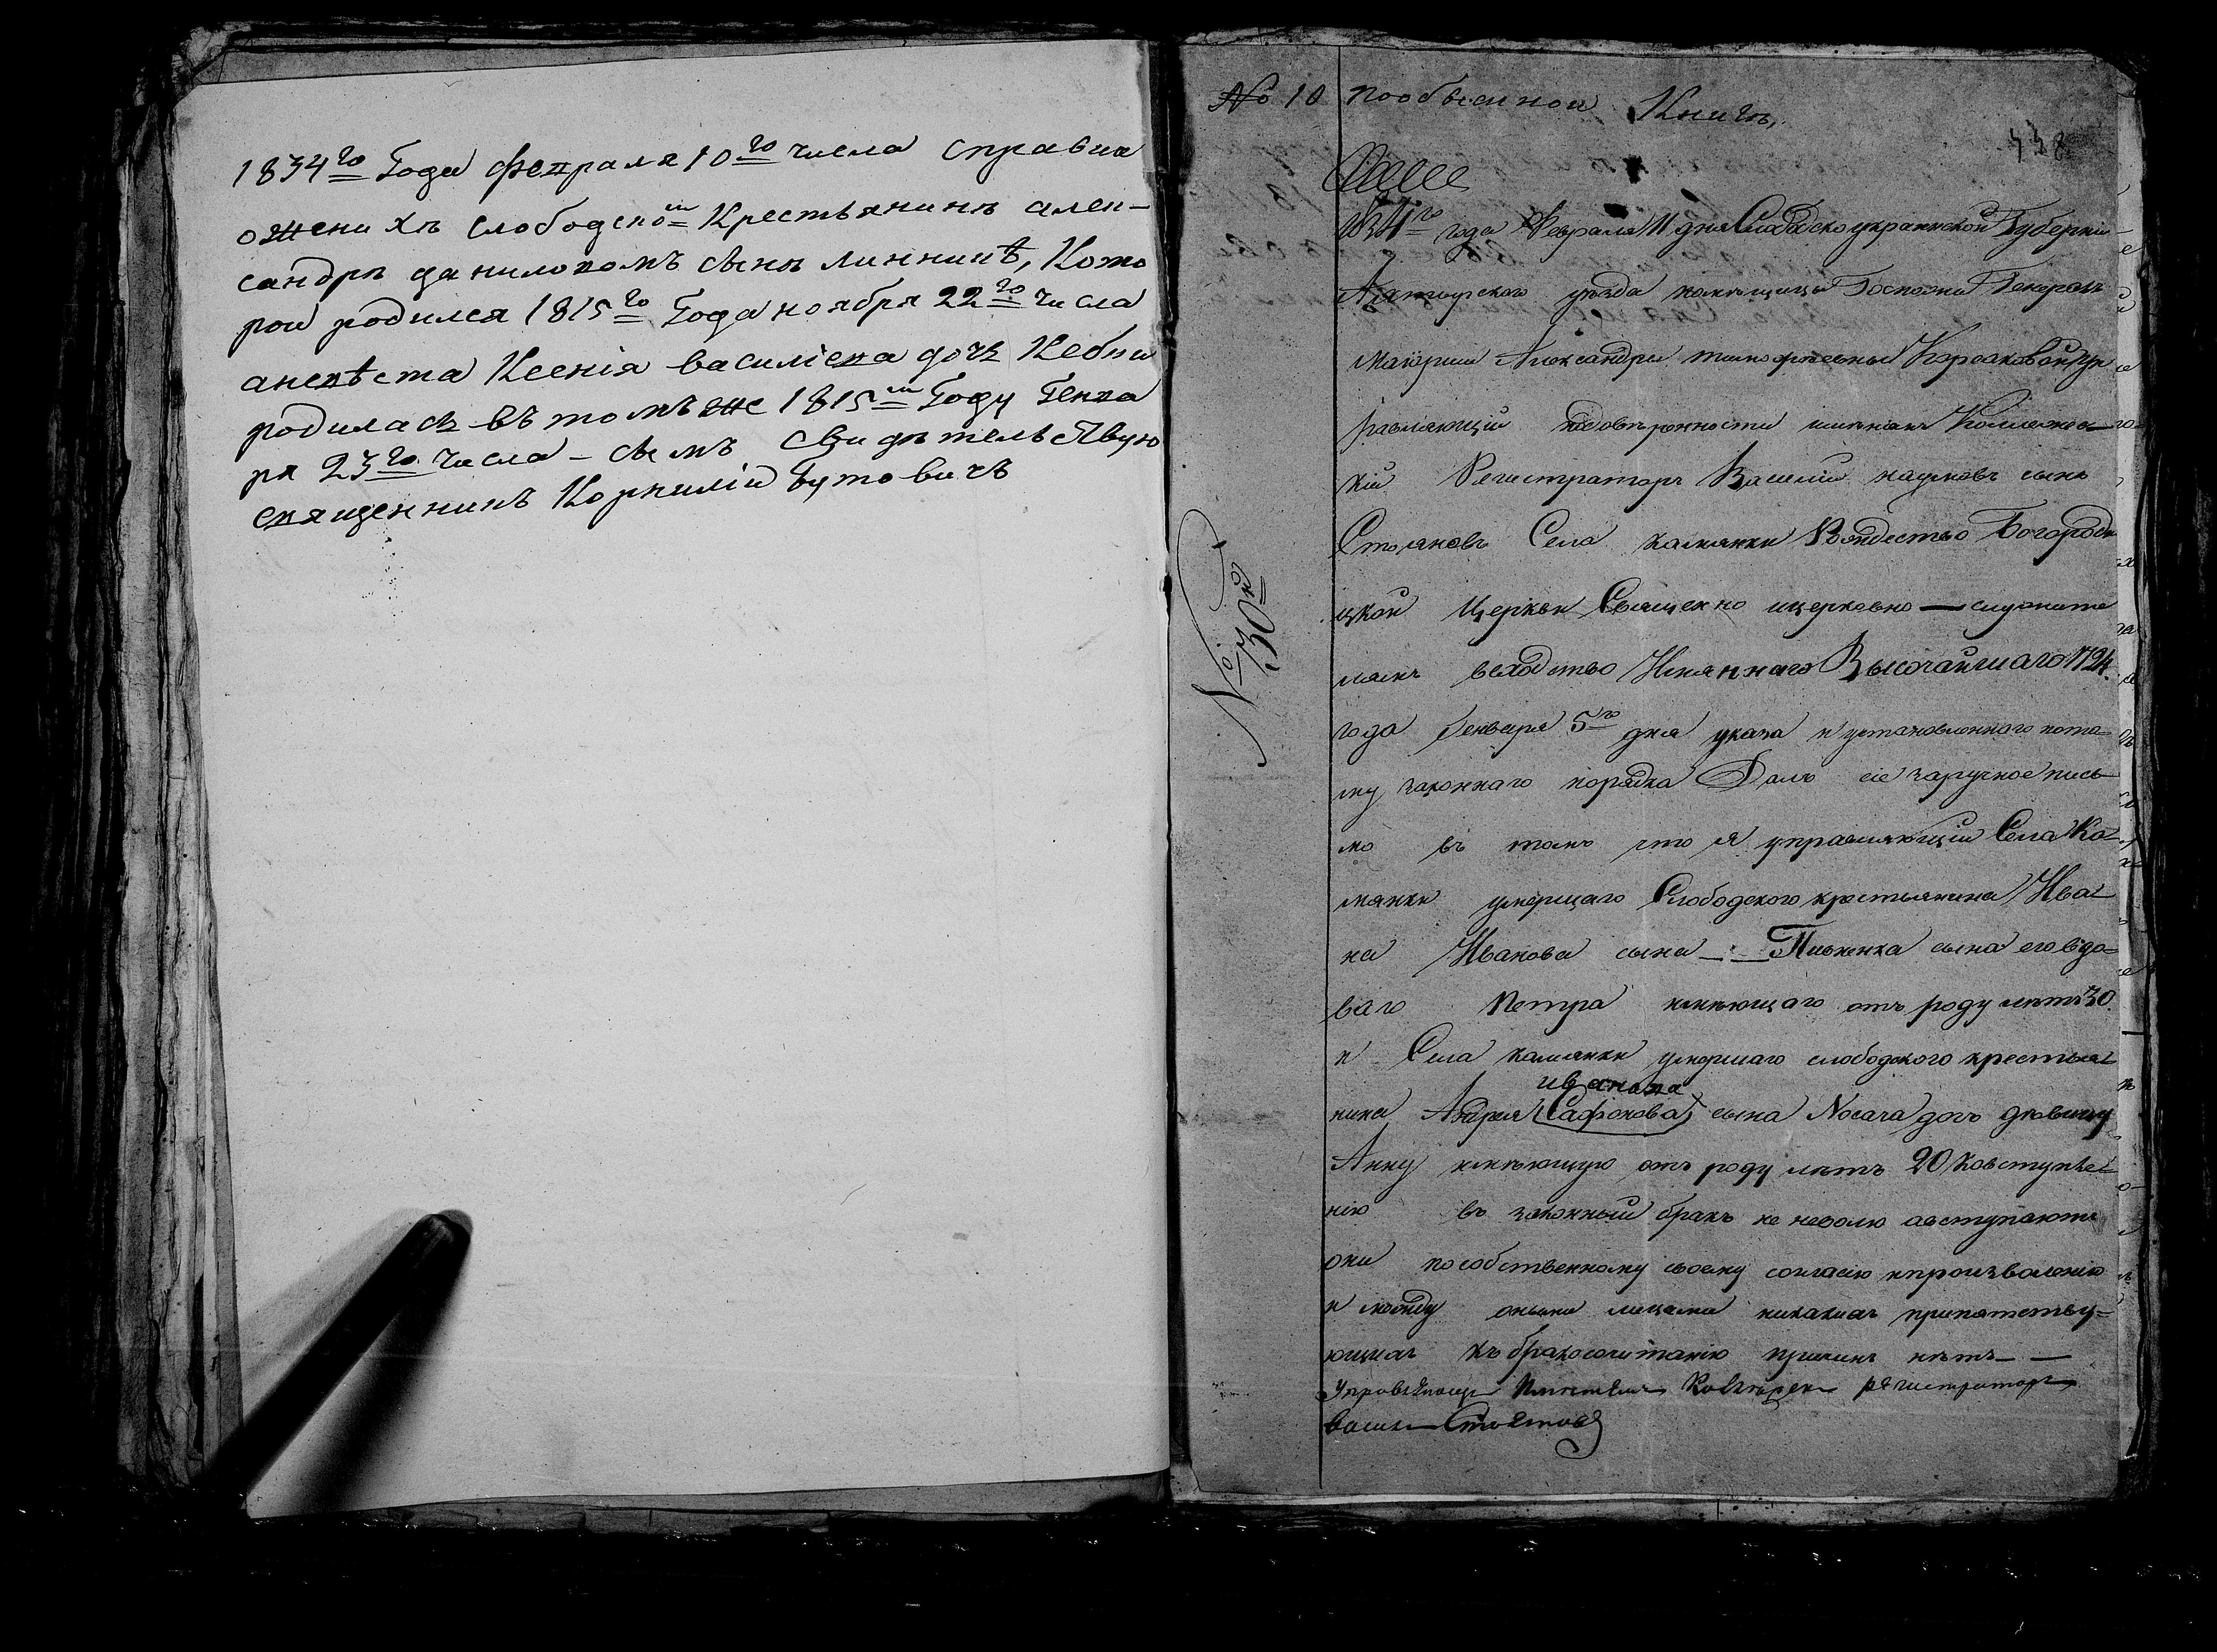 1834го Года февраля 10го числа справка
ожени хъ слободскои Крестьянинъ алек-
сандръ даниловомъ сынъ линникъ, Кото
рои родился 1815го Года ноября 22го числа
аневѣста Ксенія василіева дочь
родилась въ томъже 1815м Году Генва
ря 23го числа – съ мъ свидѣтельствую
священникъ Корнилій Бутовичъ
№ 10 пообыскнои Книгѣ,
338
1834го года Февраля 11 дня Слободскоукраинской Губерніи
Ахтырского уѣзда помѣщицы Госпожи Генералъ
маіорши Александры тимофеевны Корсаковой Уп
равляющій подовѣренности имѣніемъ Коллежс
кій Регистраторъ Василій наумовъ сынъ
Стояновъ Села камянки Рождество Богороди
цкой Церкви Священно ицерковно — служите
лямъ всходство Имяннаго Высочайшаго 1724.
года Генваря 5го дня указа и установленного пото-
му законнаго порядка Далъ сіе заручное пись
мо въ томъ что я управляющій Села Ка-
мянки умершаго Слободского крестьянина Ива-
на Иванова сына — сына его вдо-
ваго Петра имѣющаго отъ роду лѣтъ 30
и Села камянки умершаго слободского крестья-
иванова
нина Андрея (Сафонова) сына Носача дочь дѣвицу
Анну имѣющую отъ роду лѣтъ 20 ковступле-
нію въ законный бракъ не неволю авступаютъ
они пособственному своему согласію ипроизволенію
и между оными лицами никакихъ припятству-
ющихъ къ бракосочитанію причинъ нѣтъ — —
регистраторъ
Василь Стояновъ
№ 30й